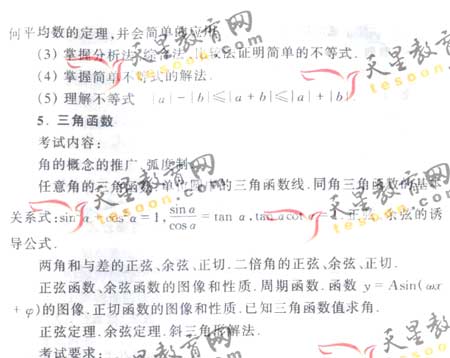 何平均数的定理,并会简单的应用.
(3) 掌握分析法、综合法、比较法证明简单的不等式.
(4) 掌握简单不等式的解法.
(5) 理解不等式 |a|-|b|≤|a+b|≤|a|+|b|
5. 三角函数
考试内容:
角的概念的推广.弧度制.
任意角的三角函数.单位圆中的三角函数线.同角三角函数的基本
关系式:sin²α+cos²α=1, sinα/cosα=tan α,tan αcot α=1.正弦、余弦的诱
导公式.
两角和与差的正弦、余弦、正切.二倍角的正弦、余弦、正切.
正弦函数、余弦函数的图像和性质.周期函数.函数 y=Asin(ωx
+φ)的图像.正切函数的图像和性质.已知三角函数值求角.
正弦定理.余弦定理.斜三角形解法.
考试要求:
天星教育网
tesoon.com
天星教育网
tesoon.com
天星教育网
tesoon.com
天星教育网
tesoon.com
天星教